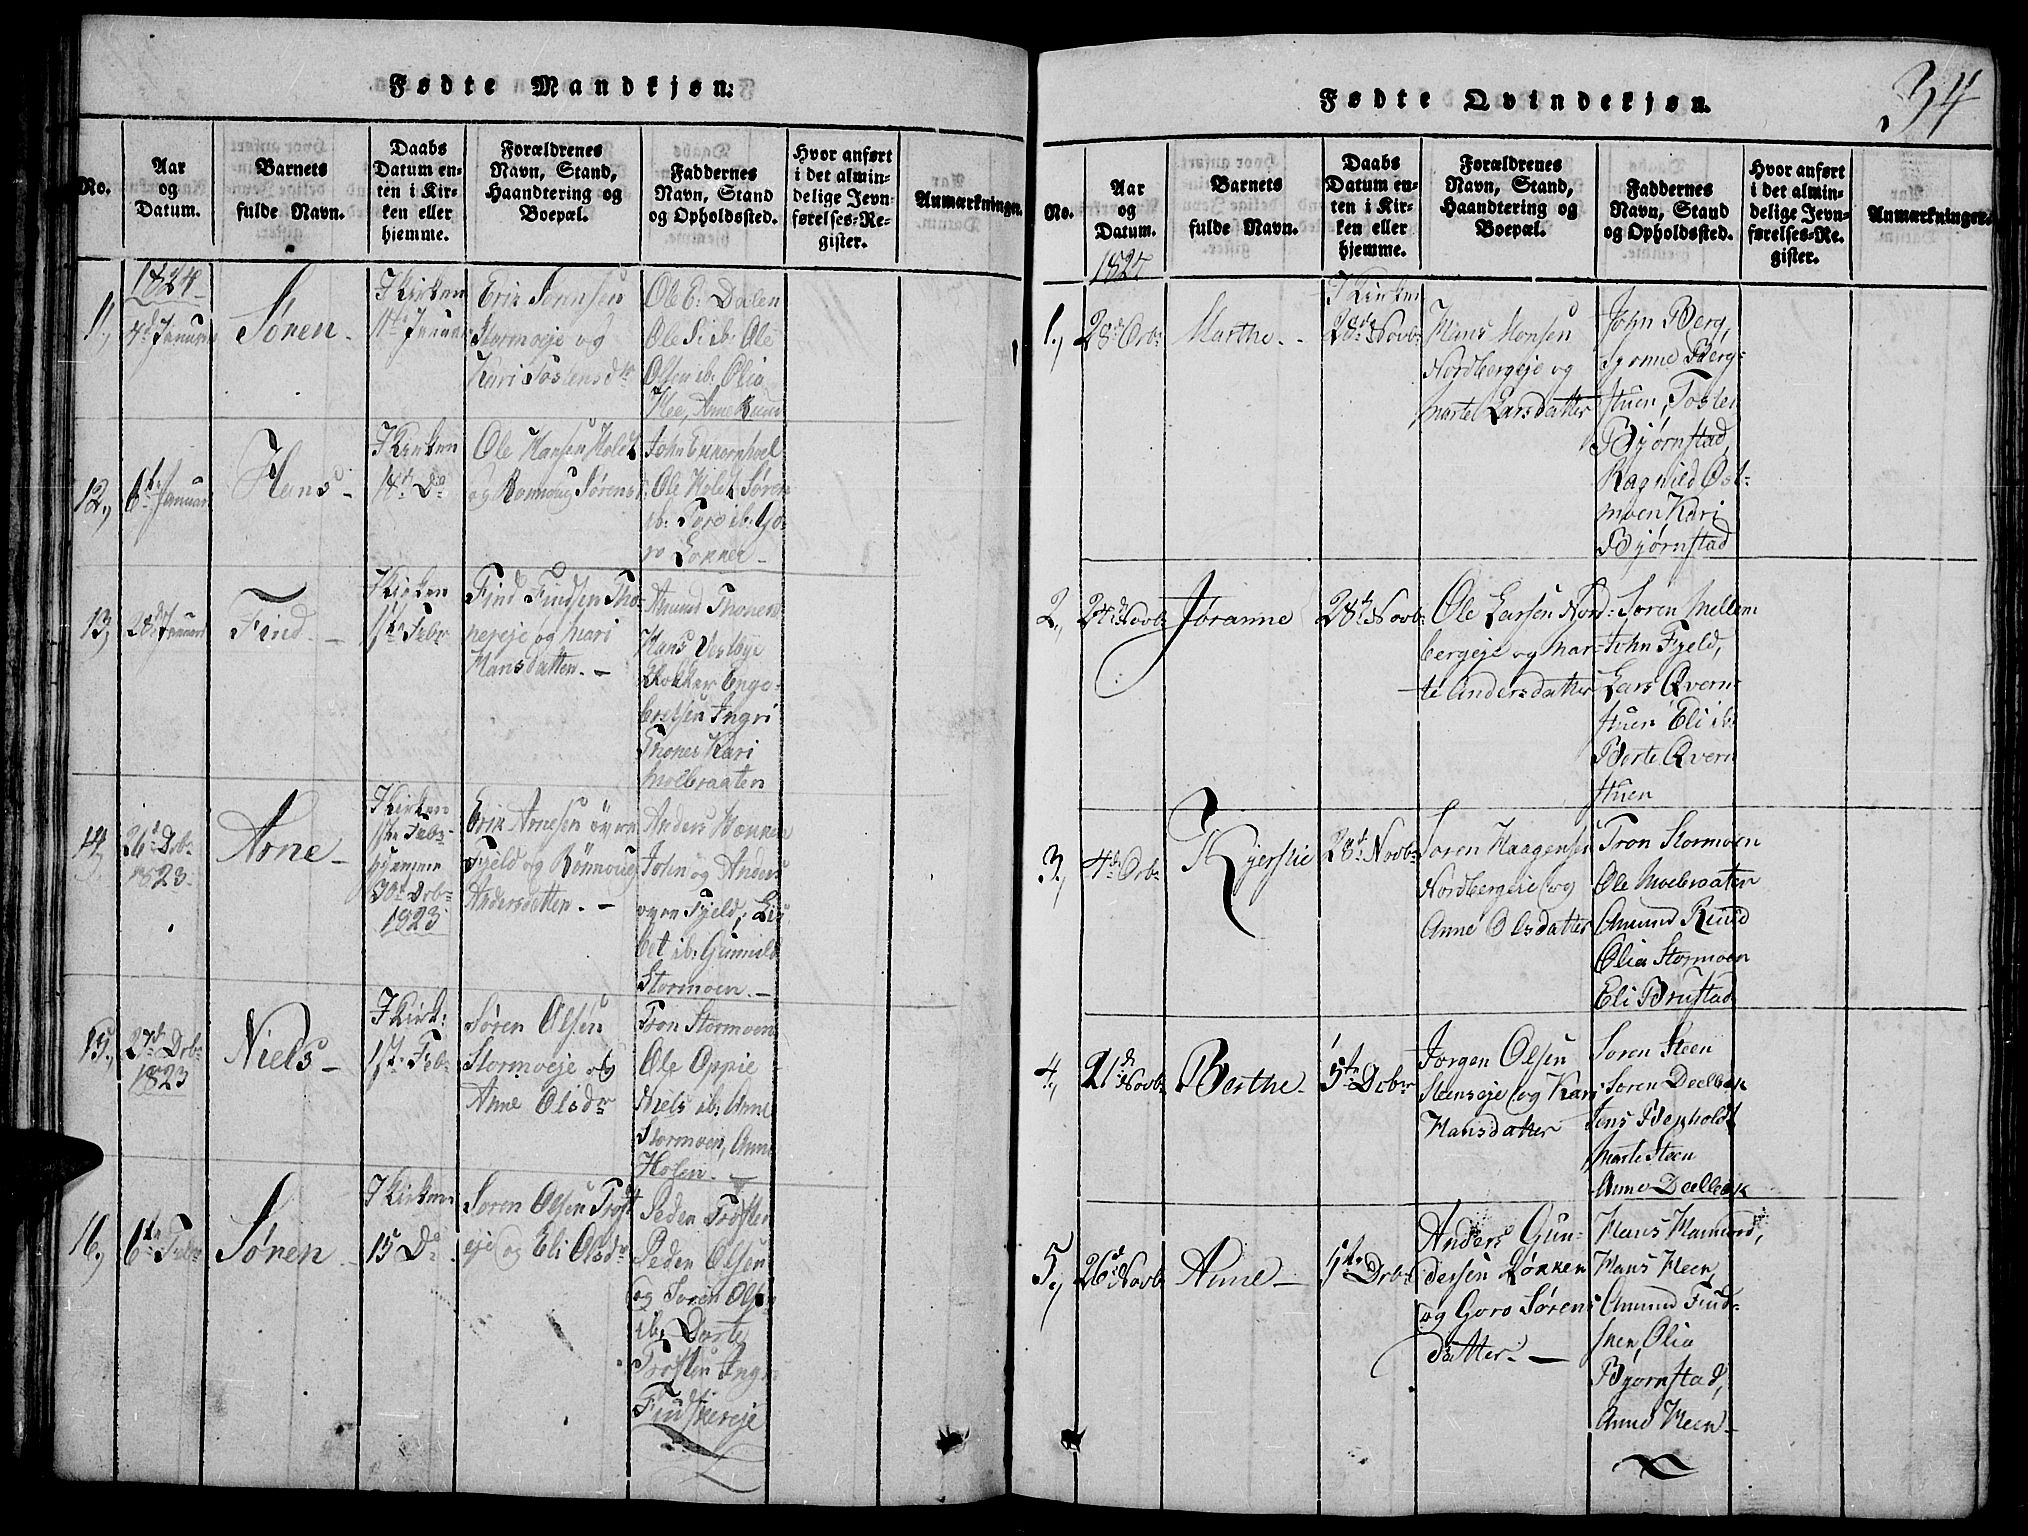 Fødte Mandkjøn:
No.
Aar
og
Datum.
Barnets
fulde Navn.
Daabs
Datum en-
ten i Kir-
ken eller
hjemme.
Forældrenes
Navn, Stand,
Haandtering og
Boepæl.
Faddernes
Navn, Stand
og Opholdssted.
Hvor anført
i det almin-
delige Jevn-
førelses-Re-
gister.
Anmærkninger.
1824
11,
4d Januar
Søren.
I Kirken
11te Januar
Erik Sørensen
Stormoeje og
Kari Tostensdr
Ole E: Dalen
Ole S: ib: Ole
Olsen ib: Olia
Moe, Anne Ruud
12,
6te Januar
Hans
I Kirken
18d Do
Ole Hansen Holet
og Ronnoug Sørens
John
Ole Holet Søren
ib: Toro ib: Go-
ro Løkker
13,
28d Januar
Find.
I Kirken
1ste Febr
Find Findsen Tho-
nereje og Mari
Hansdatter.
Amund Thonen
Hans Vestbye
Enge-
bretsen Ingri
Thonen Kari
Moebraaten
14,
26d Dcbr
1823.
Arne
I Kirken
1ste Febr
hjemme
30d Dcbr
1823
Erik Arnesen øvre
Fjeld og Rønnoug
Andersdatter.
Anders
John og Anders
øvre Fjeld, Lis
bet ib: Gunnild
Stormoen.
15,
27d Dcbr
1823
Niels
I Kirk:
1st Feb:
Søren Olsen
Stormoeje og
Anne Olsdr
Tron Stormoen
Ole Oppie
Niels ib: Anne
Stormoen, Anne
Holen.
16,
6te Febr
Søren
I Kirken
15 Do
Søren Olsen Trost
eje og Eli Olsdr
Peder Trosten
Peder Olsen
og Søren Olsen
ib: Dorte
Trosten Ingri
Findskereje
34
Fødte Qvindekjøn.
No.
Aar
og
Datum.
Barnets
fulde Navn.
Daabs
Datum en-
ten i Kir-
ken eller
hjemme.
Forældrenes
Navn, Stand,
Haandtering og
Boepæl.
Faddernes
Navn, Stand
og Opholdssted.
Hvor anført
i det almin-
delige Jevn-
førelses-Re-
gister.
Anmærkninger.
1824
1,
28d Ocb:
Marthe
I Kirken
28d Novb:
Hans Monsen
Nordbergeje og
Marte Larsdatter
John Berg,
Syvnne Berg-
stuen, Tosten
Bjørnstad,
Ragnild Øst-
moen Kari
Bjørnstad
2,
24d Novb:
Jøranne
28d Novb:
Ole Larsen Nord:
bergeje og Mar-
te Andersdatter
Soren Mellem
John Fjeld,
Lars Qvern-
stuen Eli ib:
Berte Qvern
stuen
3,
4d Ocb:
Kjerstie
28d Novb:
Soren Haagensen
Nordbergeje og
Anne Olsdatter
Tron Stormoen
Ole Moebraaten
Amund Ruud
Olia Stormoen
Eli Brustad
4,
21d Novb:
Berthe
5te Dcbr
Jorgen Olsen
Steenseje og Kari
Hansdatter
Soren Steen
Soren Deelbek
Jens Bexholdt
Marte Steen
Anne Deelbek
5,
26d Novb:
Anne
5te Dcbr
Anders Gun-
dersen Løkken
og Goro Sørens
datter.
Hans Hamund,
Hans Heen,
Amund Find-
sken, Olia
Bjørnstad,
Anne Heen